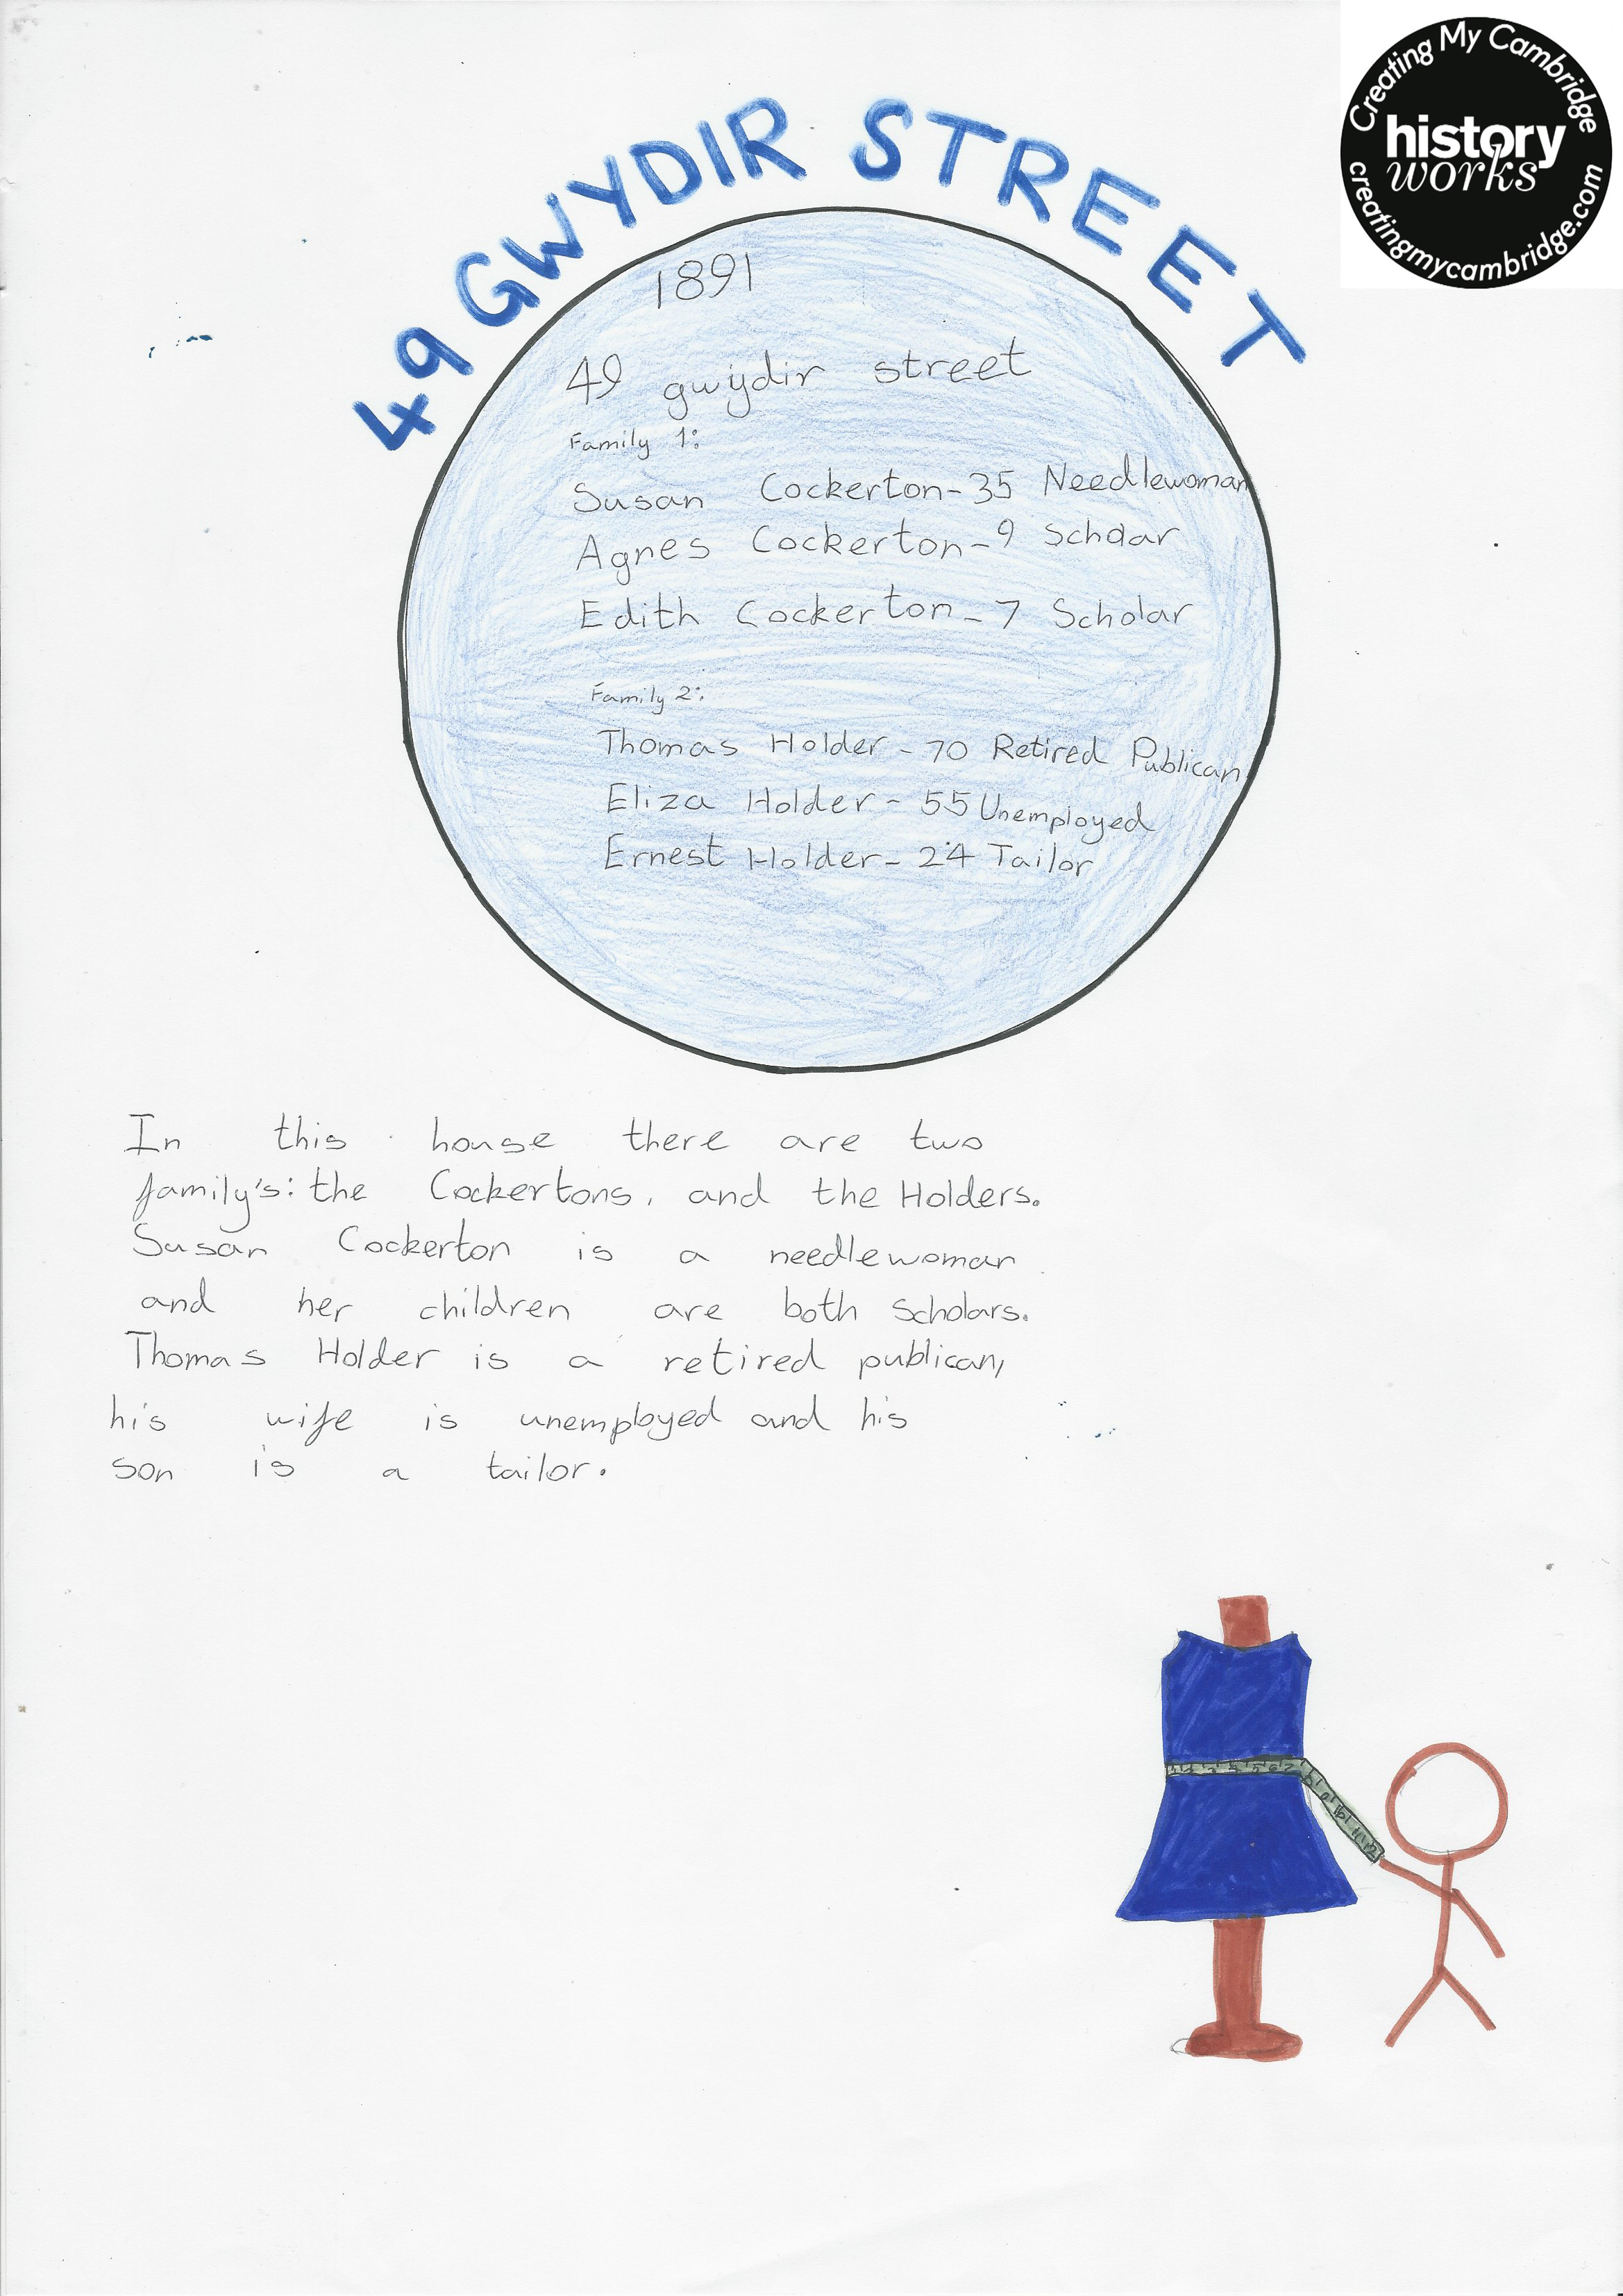 Creating My Cambridge
history
works
creatingmycambridge.com
49 GWYDIR STREET
1891
49 gwydir street
Family 1:
Susan Cockerton-35 Needlewoman
Agnes Cockerton-9 Scholar
Edith Cockerton-7 Scholar
Family 2:
Thomas Holder-70 Retired Publican
Eliza Holder-55 Unemployed
Ernest Holder-24 Tailor
In this house there are two
family's: the Cockertons, and the Holders.
Susan Cockerton is a needlewoman
and her children are both scholars.
Thomas Holder is a retired publican,
his wife is unemployed and his
son is a tailor.